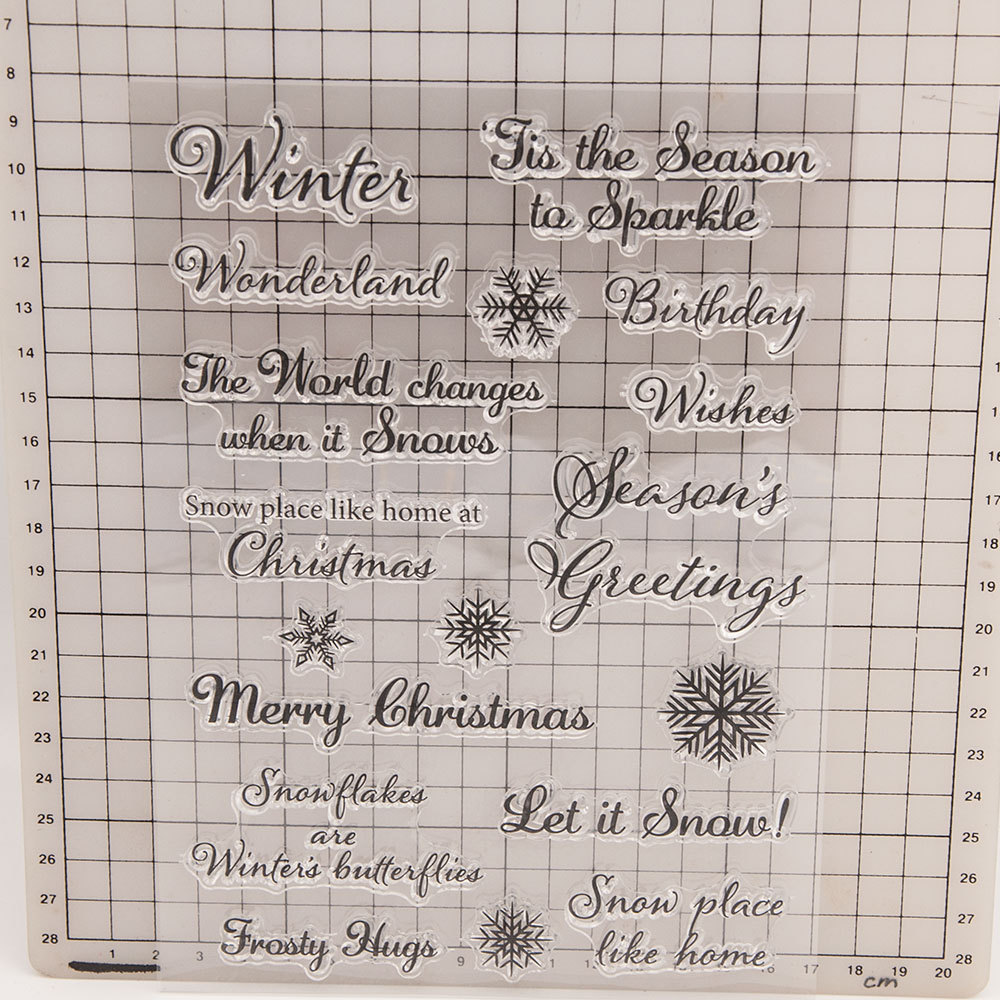 Winter
'Tis the Season
to Sparkle
Wonderland
Birthday
The World changes
when it Snows
Wishes
Snow place like home at
Christmas
Season's
Greetings
Merry Christmas
Snowflakes
are
Winter's butterflies
Let it Snow!
Frosty Hugs
Snow place
like home
7
8
9
10
11
12
13
14
15
16
17
18
19
20
21
22
23
24
25
26
27
28
16
17
18
19
20
21
22
23
24
25
26
27
28
1 2 3 9 16 17 18 19 20
cm